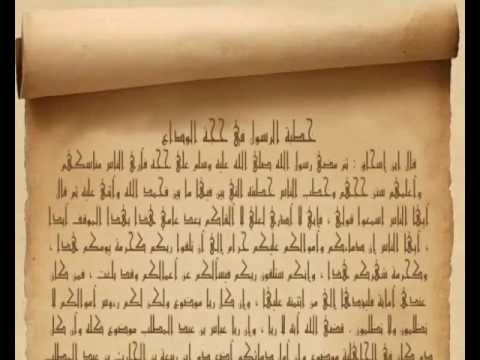 خطبة الرسول في حجة الوداع
قال ابن إسحاق : ثم مضى رسول الله صلى الله عليه وسلم على حجه فأرى الناس مناسكهم
وأعلمهم سنن حجهم وخطب الناس خطبته التي بين فيها ما بين فحمد الله وأثنى عليه ثم قال
أيها الناس اسمعوا قولي ، فإني لا أدري لعلي لا ألقاكم بعد عامي هذا بهذا الموقف أبدا
، أيها الناس إن دماءكم وأموالكم عليكم حرام إلى أن تلقوا ربكم كحرمة يومكم هذا ،
وكحرمة شهركم هذا ، وإنكم ستلقون ربكم فيسألكم عن أعمالكم وقد بلغت ، فمن كان
عنده أمانة فليؤدها إلى من ائتمنه عليها ، وإن كل ربا موضوع ولكن لكم رءوس أموالكم لا
تظلمون ولا تظلمون . قضى الله أنه لا ربا ، وإن ربا عباس بن عبد المطلب موضوع كله وأن كل
دم كان في الجاهلية موضوع وإن أول دمائكم أضع دم ابن ربيعة بن الحارث بن عبد المطلب